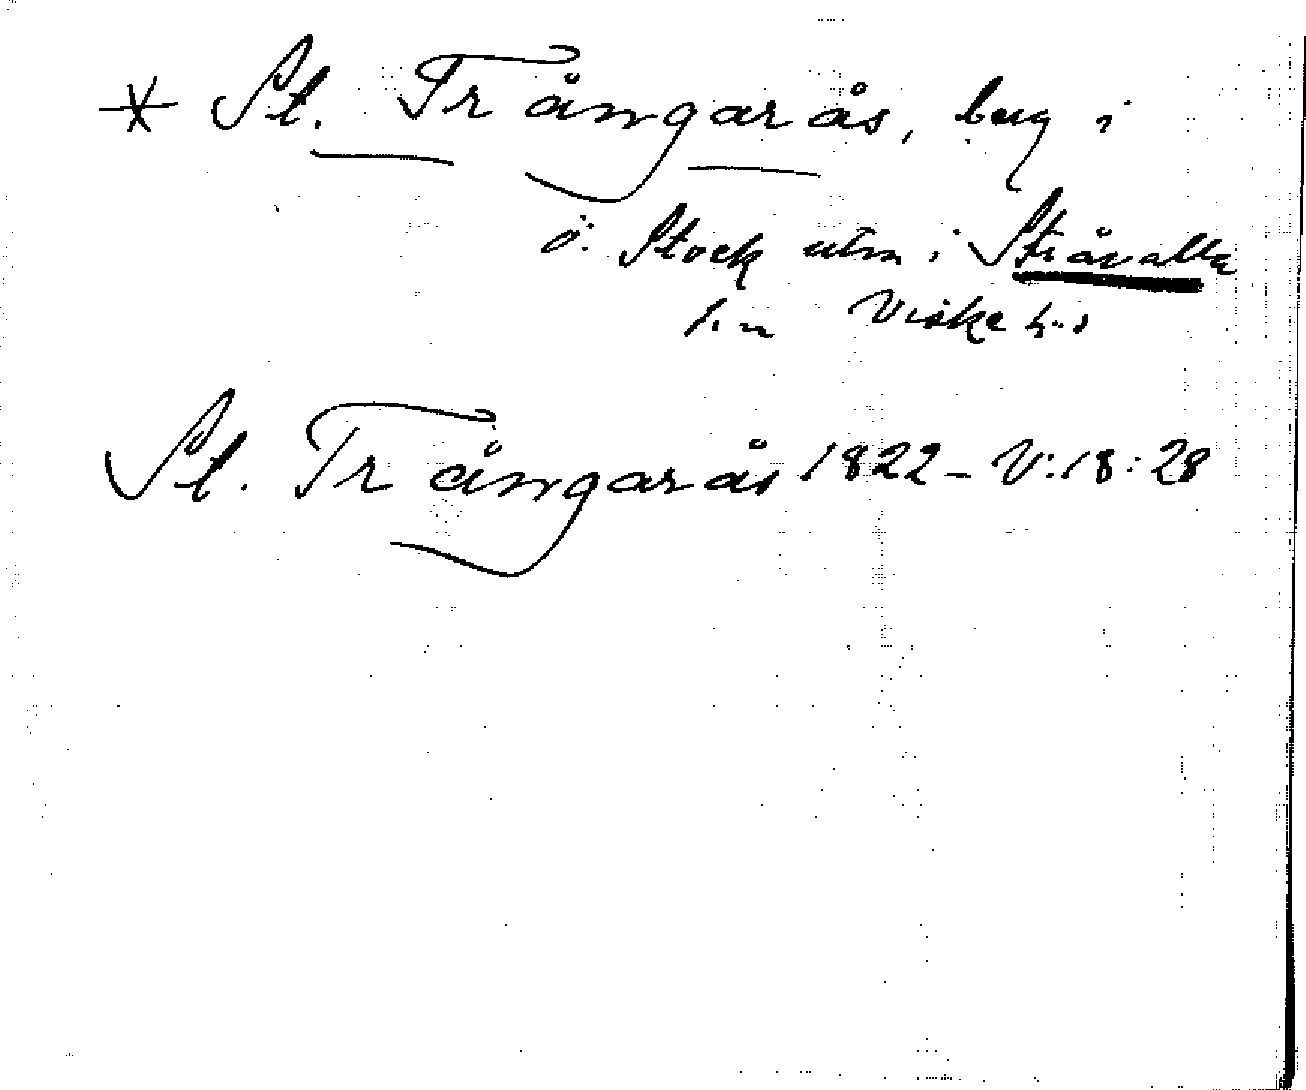 * St. Trångarås, berg i
ö. Stock utm i Stråvalla
sn Viske hd
St. Trångarås 1822 - V:18:28